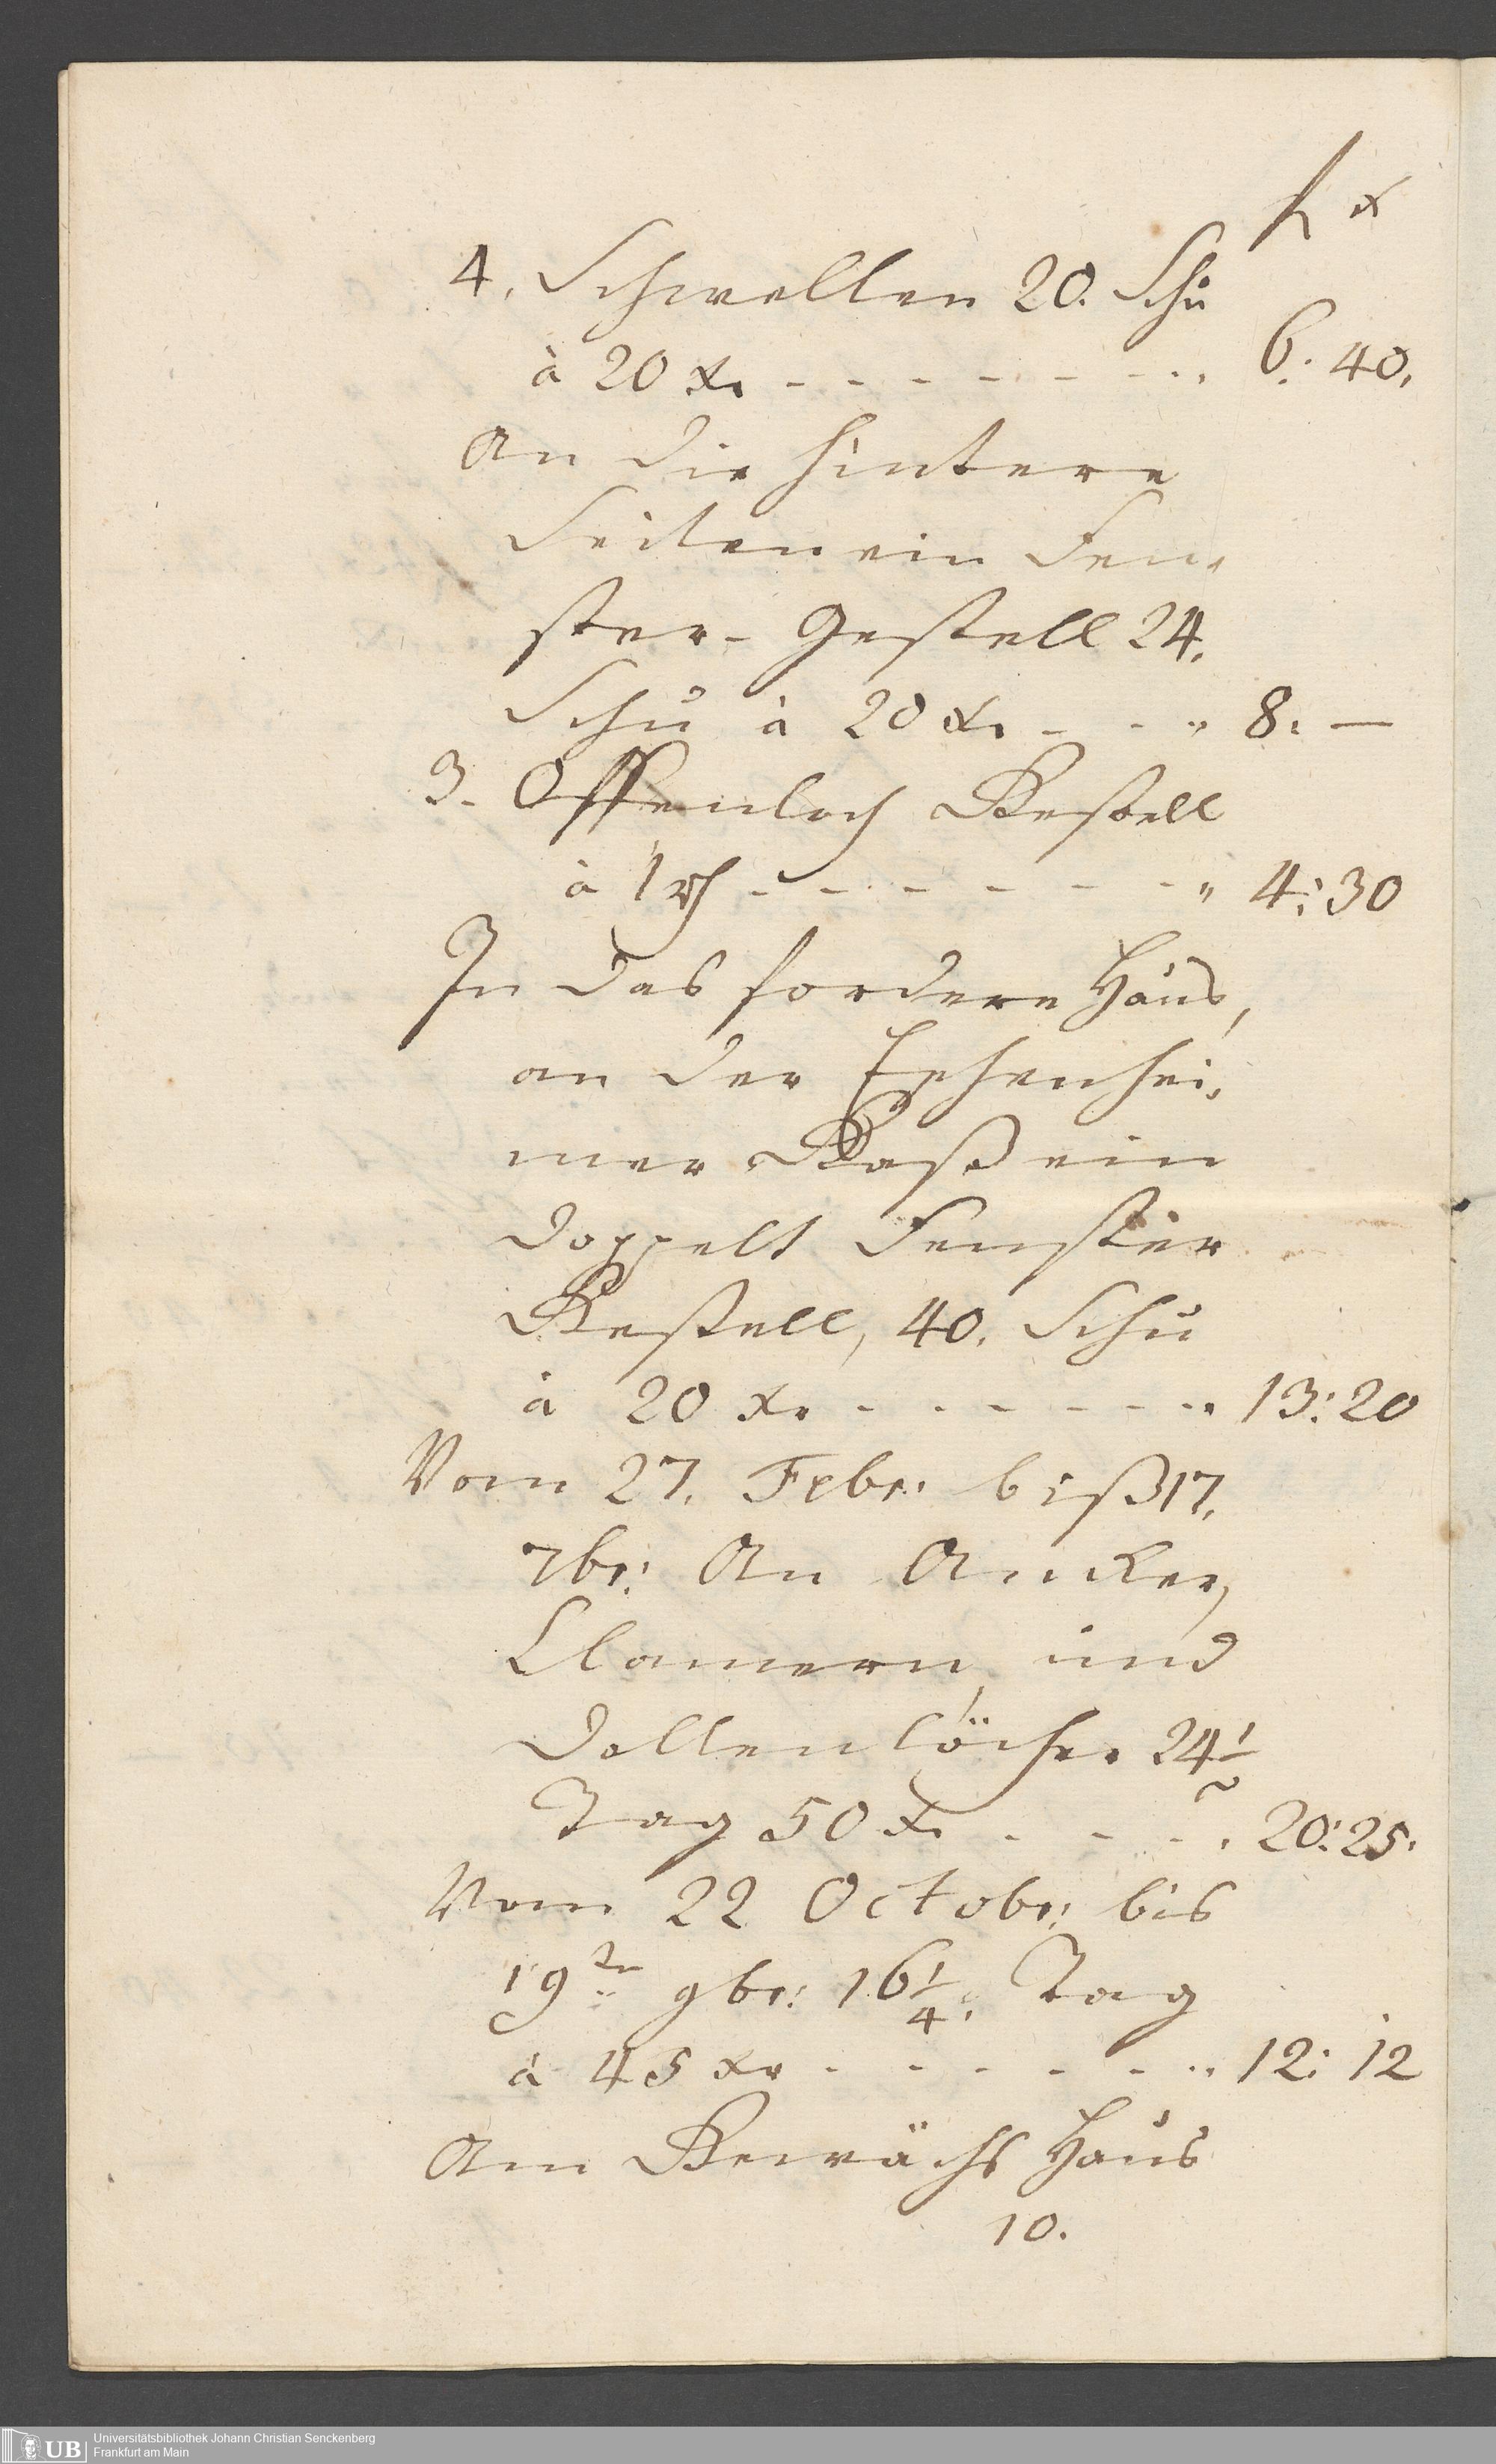 f x
4. Schwellen 20. Schu
à 20 xr - - - - - - - - 6: 40.
An die hintere
Seiten ein Fen,
ster- Gestell 24.
Schu à 20 xr - - - 8: —
3. Offenloch Gestell
à 1 rh - - - - - - - 4: 30
In das fordere Haus,
an der Eschenhei,
mer Gaß ein
doppelt Fenster
Gestell, 40. Schu
à 20 xr - - - - - - - 13: 20
Vom 27. Febr: biß 17.
7br: An Ancker,
Clamern, und
Dollenlöcher 24 1/2
Tag 50 xr - - - - 20: 25.
Vom 22 Octobr: bis
19ten 9br: 16 1/4. Tag
à 45 xr - - - - - - 12: 12
Am Gewächs Haus
10.
UB Universitätsbibliothek Johann Christian Senckenberg
Frankfurt am Main